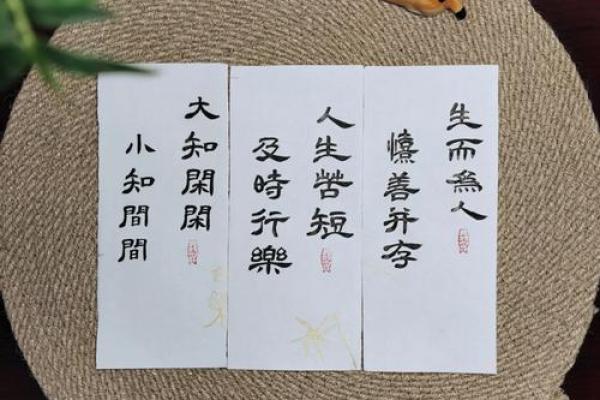 生而為人
善并存
人生苦短
及時行樂
大知閑閑
小知間間